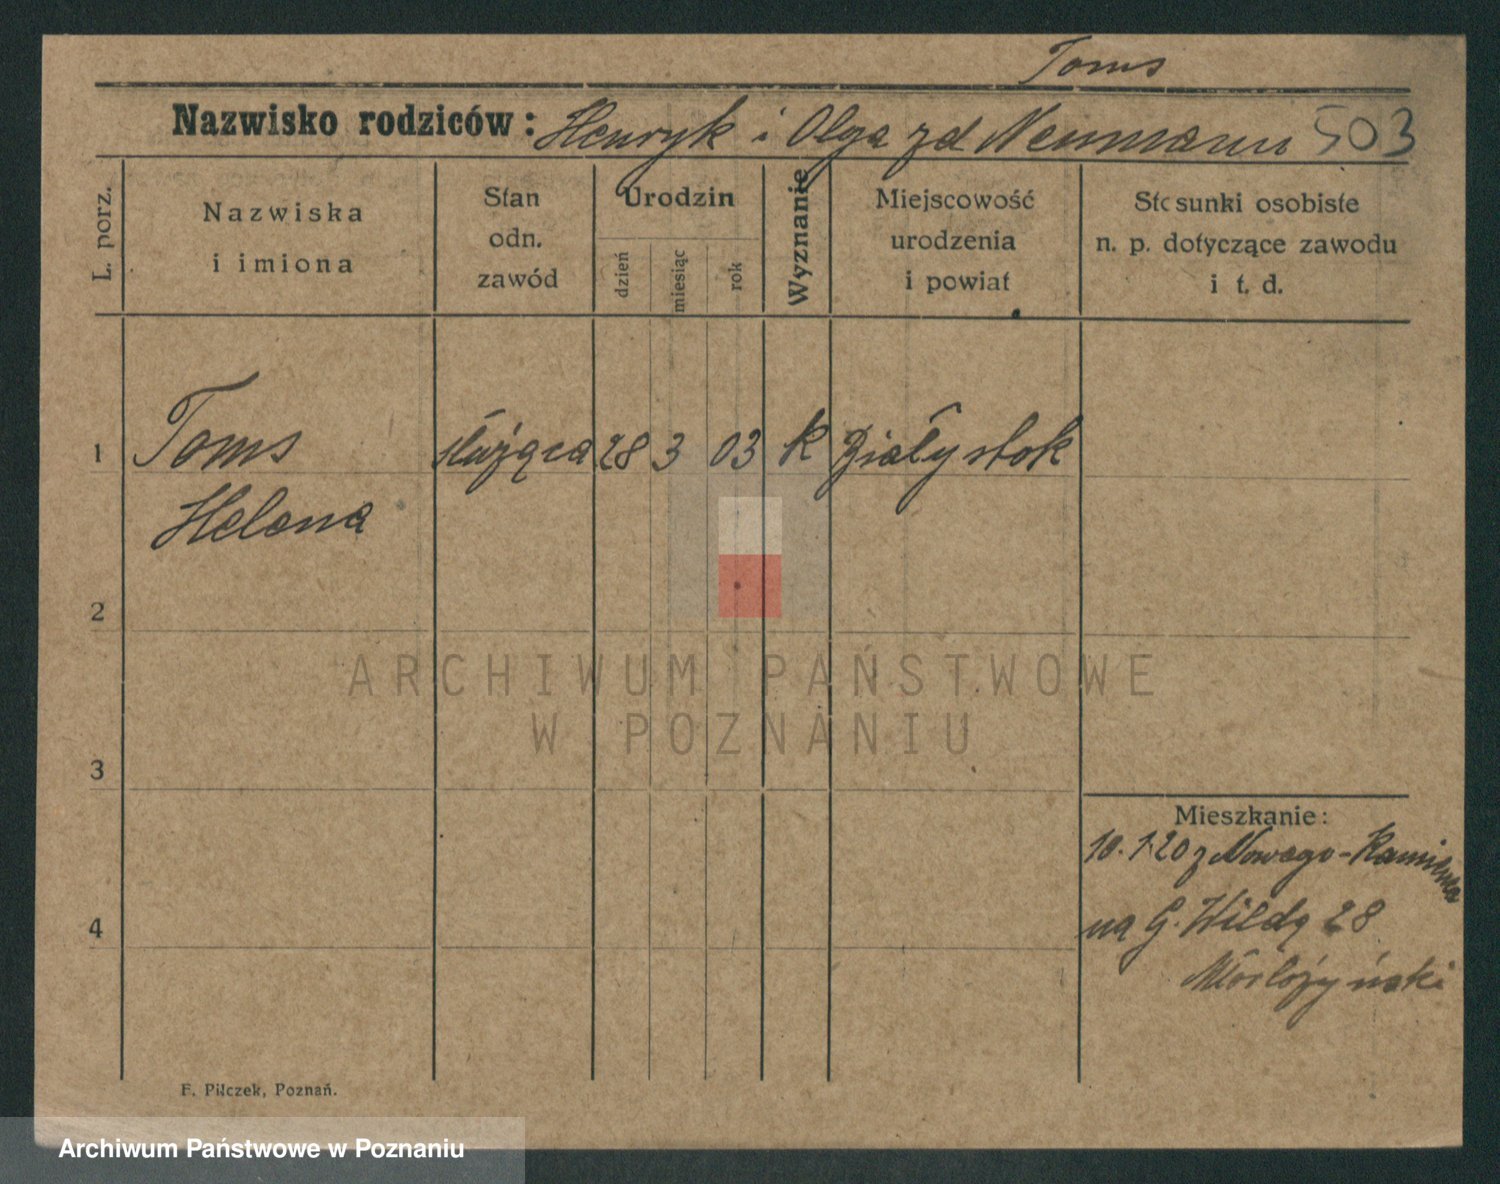 Toms
Nazwisko rodziców: Henryk i Olga zd Neumann 503
L. porz.
Nazwiska
i imiona
Stan
odn.
zawód
Urodzin
dzień
miesiąc
rok
Wyznanie
Miejscowość
urodzenia
i powiat
Stosunki osobiste
n. p. dotyczące zawodu
i t. d.
1 Toms służąca 28 3 03 k Białystok
Helena
2
3
4
Mieszkanie:
10.1.20 z Nowego-
na G. Wildę 28
F. Pilczek, Poznań.
ARCHIWUM PAŃSTWOWE
W POZNANIU
Archiwum Państwowe w Poznaniu